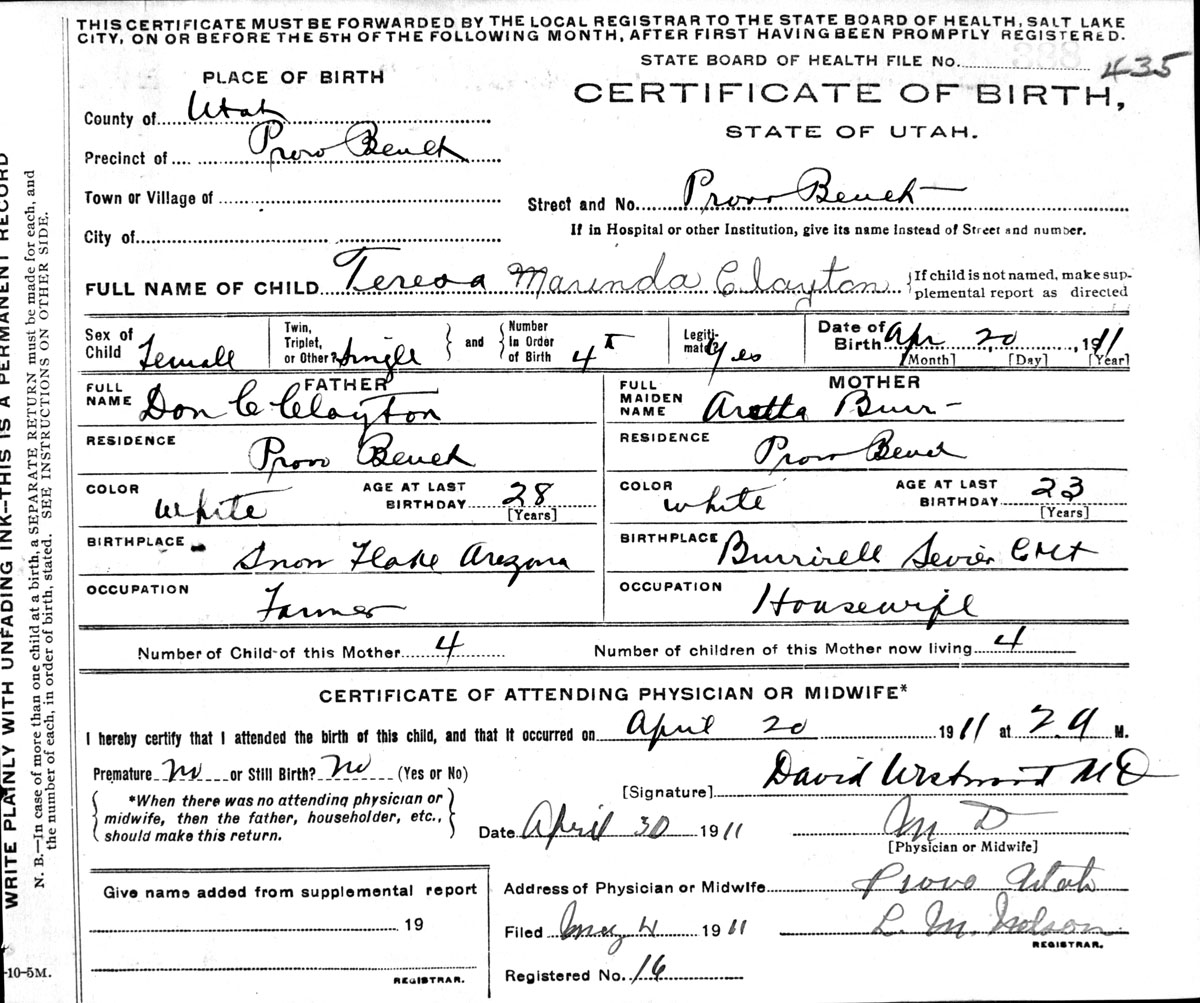 THIS CERTIFICATE MUST BE FORWARDED BY THE LOCAL REGISTRAR TO THE STATE BOARD OF HEALTH, SALT LAKE
CITY, ON OR BEFORE THE 5TH OF THE FOLLOWING MONTH, AFTER FIRST HAVING BEEN PROMPTLY REGISTERED.
STATE BOARD OF HEALTH FILE No. 435
PLACE OF BIRTH
CERTIFICATE OF BIRTH,
STATE OF UTAH.
County of Utah
Precinct of Provo Bench
Town or Village of
Street and No. Provo Bench
City of
If in Hospital or other Institution, give its name instead of Street and number.
FULL NAME OF CHILD Teresa Marinda Clayton
If child is not named, make sup-
plemental report as directed
Sex of Child Female
Twin, Triplet, or Other? Single
and
Number In Order of Birth 4
Legiti-mate? Yes
Date of Birth Apr 20, 1911
[Month] [Day] [Year]
FATHER
FULL NAME Don C Clayton
MOTHER
FULL MAIDEN NAME Aretta Burr
RESIDENCE Provo Bench
RESIDENCE Provo Bench
COLOR White
AGE AT LAST BIRTHDAY 28 [Years]
COLOR White
AGE AT LAST BIRTHDAY 23 [Years]
BIRTHPLACE Snow Flake Arezona
BIRTHPLACE Burrirell Sevier
OCCUPATION Farmer
OCCUPATION Housewife
Number of Child of this Mother 4
Number of children of this Mother now living 4
CERTIFICATE OF ATTENDING PHYSICIAN OR MIDWIFE*
I hereby certify that I attended the birth of this child, and that it occurred on April 20 1911 at 2 A M.
Premature No or Still Birth? No (Yes or No)
[Signature] David Westwood MD
*When there was no attending physician or
midwife, then the father, householder, etc.,
should make this return.
Date April 30 1911
M D
[Physician or Midwife]
Give name added from supplemental report
19
REGISTRAR.
Address of Physician or Midwife Provo Utah
Filed May 4 1911 L. M. Nelson
REGISTRAR.
Registered No. 16
WRITE PLAINLY WITH UNFADING INK—THIS IS A PERMANENT RECORD
N. B.—In case of more than one child at a birth, a SEPARATE RETURN must be made for each, and
the number of each, in order of birth, stated. SEE INSTRUCTIONS ON OTHER SIDE.
-10-5M.